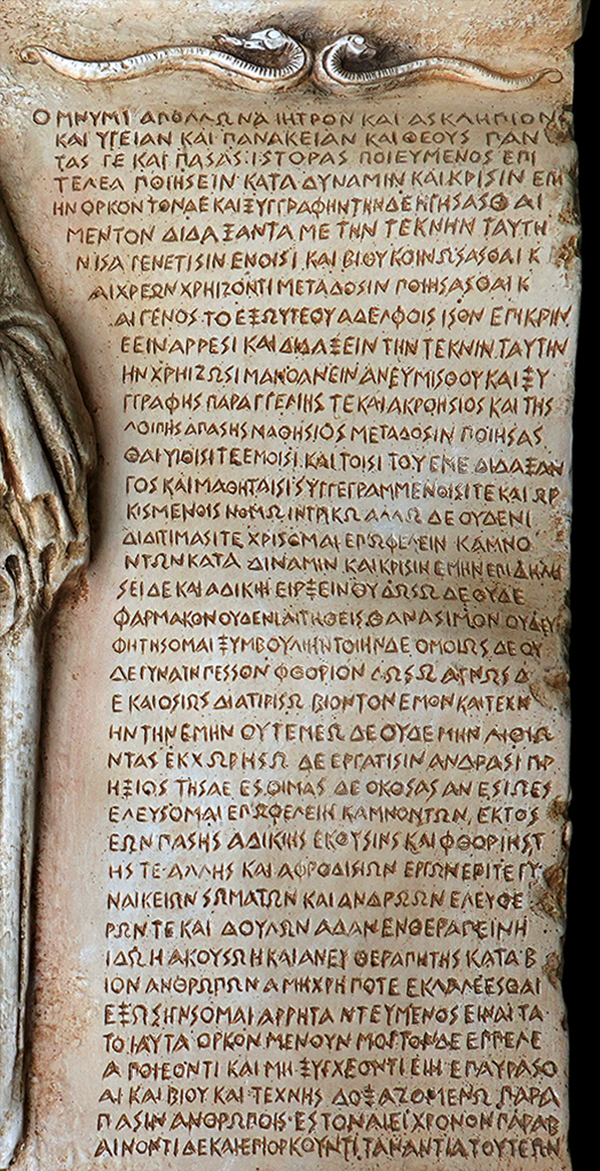 ΟΜΝΥΜΙ ΑΠΟΛΛΩΝΑ ΙΗΤΡΟΝ ΚΑΙ ΑΣΚΛΗΠΙΟΝ
ΚΑΙ ΥΓΕΙΑΝ ΚΑΙ ΠΑΝΑΚΕΙΑΝ ΚΑΙ ΘΕΟΥΣ ΠΑΝ
ΤΑΣ ΓΕ ΚΑΙ ΠΑΣΑΣ: ΙΣΤΟΡΑΣ ΠΟΙΕΥΜΕΝΟΣ ΕΠΙ
ΤΕΛΕΑ ΠΟΙΗΣΕΙΝ ΚΑΤΑ ΔΥΝΑΜΙΝ ΚΑΙ ΚΡΙΣΙΝ ΕΜ
ΗΝ ΟΡΚΟΝ ΤΟΝΔΕ ΚΑΙ ΞΥΓΓΡΑΦΗΝ ΤΗΝΔΕ ΗΓΗΣΑΣΘΑΙ
ΜΕΝ ΤΟΝ ΔΙΔΑΞΑΝΤΑ ΜΕ ΤΗΝ ΤΕΚΝΗΝ ΤΑΥΤΗ
Ν ΙΣΑ ΓΕΝΕΤΙΣΙΝ ΕΝΟΙΣΙ ΚΑΙ ΒΙΟΥ ΚΟΙΝΩΣΑΣΘΑΙ Κ
ΑΙ ΧΡΕΩΝ ΧΡΗΙΖΟΝΤΙ ΜΕΤΑΔΟΣΙΝ ΠΟΙΗΣΑΣΘΑΙ Κ
ΑΙ ΓΕΝΟΣ ΤΟ ΕΞΩΥΤΕΟΥ ΑΔΕΛΦΟΙΣ ΙΣΟΝ ΕΠΙΚΡΙΝ
ΕΕΙΝ ΑΡΡΕΣΙ ΚΑΙ ΔΙΔΑΞΕΙΝ ΤΗΝ ΤΕΚΝΙΝ ΤΑΥΤΙΝ
ΗΝ ΧΡΗΙΖΩΣΙ ΜΑΝΘΑΝΕΙΝ ΑΝΕΥ ΜΙΣΘΟΥ ΚΑΙ ΞΥ
ΓΓΡΑΦΗΣ ΠΑΡΑΓΓΕΛΙΗΣ ΤΕ ΚΑΙ ΑΚΡΟΗΣΙΟΣ ΚΑΙ ΤΗΣ
ΛΟΙΠΗΣ ΑΠΑΣΗΣ ΜΑΘΗΣΙΟΣ ΜΕΤΑΔΟΣΙΝ ΠΟΙΗΣΑΣ
ΘΑΙ ΥΙΟΙΣΙ ΤΕ ΕΜΟΙΣΙ ΚΑΙ ΤΟΙΣΙ ΤΟΥ ΕΜΕ ΔΙΔΑΞΑΝ
ΓΟΣ ΚΑΙ ΜΑΘΗΤΑΙΣΙ ΣΥΓΓΕΓΡΑΜΜΕΝΟΙΣΙ ΤΕ ΚΑΙ ΩΡ
ΚΙΣΜΕΝΟΙΣ ΝΟΜΩ ΙΗΤΡΙΚΩ ΑΛΛΩ ΔΕ ΟΥΔΕΝΙ
ΔΙΑΙΤΙΜΑΣΙ ΤΕ ΧΡΙΣΟΜΑΙ ΕΠΩΦΕΛΕΙΝ ΚΑΜΝΟ
ΝΤΩΝ ΚΑΤΑ ΔΙΝΑΜΙΝ ΚΑΙ ΚΡΙΣΙΝ ΕΜΗΝ ΕΠΙ ΔΗΛΗ
ΣΕΙ ΔΕ ΚΑΙ ΑΔΙΚΙΗ ΕΙΡΞΕΙΝ ΟΥ ΔΩΣΩ ΔΕ ΟΥΔΕ
ΦΑΡΜΑΚΟΝ ΟΥΔΕΝΙ ΑΙΤΗΘΕΙΣ ΘΑΝΑΣΙΜΟΝ ΟΥΔΕΥ
ΦΗΓΗΣΟΜΑΙ ΞΥΜΒΟΥΛΙΗΝ ΤΟΙΗΝΔΕ ΟΜΟΙΩΣ ΔΕ ΟΥ
ΔΕ ΓΥΝΑΙΚΙ ΠΕΣΣΟΝ ΦΘΟΡΙΟΝ ΔΩΣΩ ΑΓΝΩΣ Δ
Ε ΚΑΙ ΟΣΙΩΣ ΔΙΑΤΙΡΙΣΩ ΒΙΟΝ ΤΟΝ ΕΜΟΝ ΚΑΙ ΤΕΧΝ
ΗΝ ΤΗΝ ΕΜΗΝ ΟΥ ΤΕΜΕΩ ΔΕ ΟΥΔΕ ΜΗΝ ΛΙΘΙΩ
ΝΤΑΣ ΕΚΧΩΡΗΣΩ ΔΕ ΕΡΓΑΤΙΣΙΝ ΑΝΔΡΑΣΙ ΠΡ
ΗΞΙΟΣ ΤΗΣΔΕ ΕΣ ΟΙΚΙΑΣ ΔΕ ΟΚΟΣΑΣ ΑΝ ΕΣΙΩ ΕΣ
ΕΛΕΥΣΟΜΑΙ ΕΠΩΦΕΛΕΙΗ ΚΑΜΝΟΝΤΩΝ, ΕΚΤΟΣ
ΕΩΝ ΠΑΣΗΣ ΑΔΙΚΙΗΣ ΕΚΟΥΣΙΝΣ ΚΑΙ ΦΘΟΡΙΗΣ Τ
ΗΣ ΤΕ ΑΛΛΗΣ ΚΑΙ ΑΦΡΟΔΙΣΙΩΝ ΕΡΓΩΝ ΕΠΙ ΤΕ ΓΥ
ΝΑΙΚΕΙΩΝ ΣΩΜΑΤΩΝ ΚΑΙ ΑΝΔΡΩΩΝ ΕΛΕΥΘΕ
ΡΩΝ ΤΕ ΚΑΙ ΔΟΥΛΩΝ Α Δ ΑΝ ΕΝ ΘΕΡΑΠΕΙΝΗ
ΙΔΩ Η ΑΚΟΥΣΩ Η ΚΑΙ ΑΝΕΥ ΘΕΡΑΠΗΤΗΣ ΚΑΤΑ Β
ΙΟΝ ΑΝΘΡΩΠΩΝ Α ΜΗ ΧΡΗ ΠΟΤΕ ΕΚΛΑΛΕΕΣΘΑΙ
ΕΞΩ ΣΙΓΗΣΟΜΑΙ ΑΡΡΗΤΑ ΝΤΕΥΜΕΝΟΣ ΕΙΝΑΙ ΤΑ
ΤΟΙΑΥΤΑ ΟΡΚΟΝ ΜΕΝ ΟΥΝ ΜΟΙ ΤΟΝΔΕ ΕΠΙΤΕΛΕ
Α ΠΟΙΕΟΝΤΙ ΚΑΙ ΜΗ ΞΥΓΧΕΟΝΤΙ ΕΙΗ ΕΠΑΥΡΑΣΘ
ΑΙ ΚΑΙ ΒΙΟΥ ΚΑΙ ΤΕΧΝΗΣ ΔΟΞΑΖΟΜΕΝΩ ΠΑΡΑ
ΠΑΣΙΝ ΑΝΘΡΩΠΟΙΣ ΕΣ ΤΟΝ ΑΙΕΙ ΧΡΟΝΟΝ ΠΑΡΑΒ
ΑΙΝΟΝΤΙ ΔΕ ΚΑΙ ΕΠΙΟΡΚΟΥΝΤΙ, ΤΑΝΑΝΤΙΑ ΤΟΥΤΕΩΝ